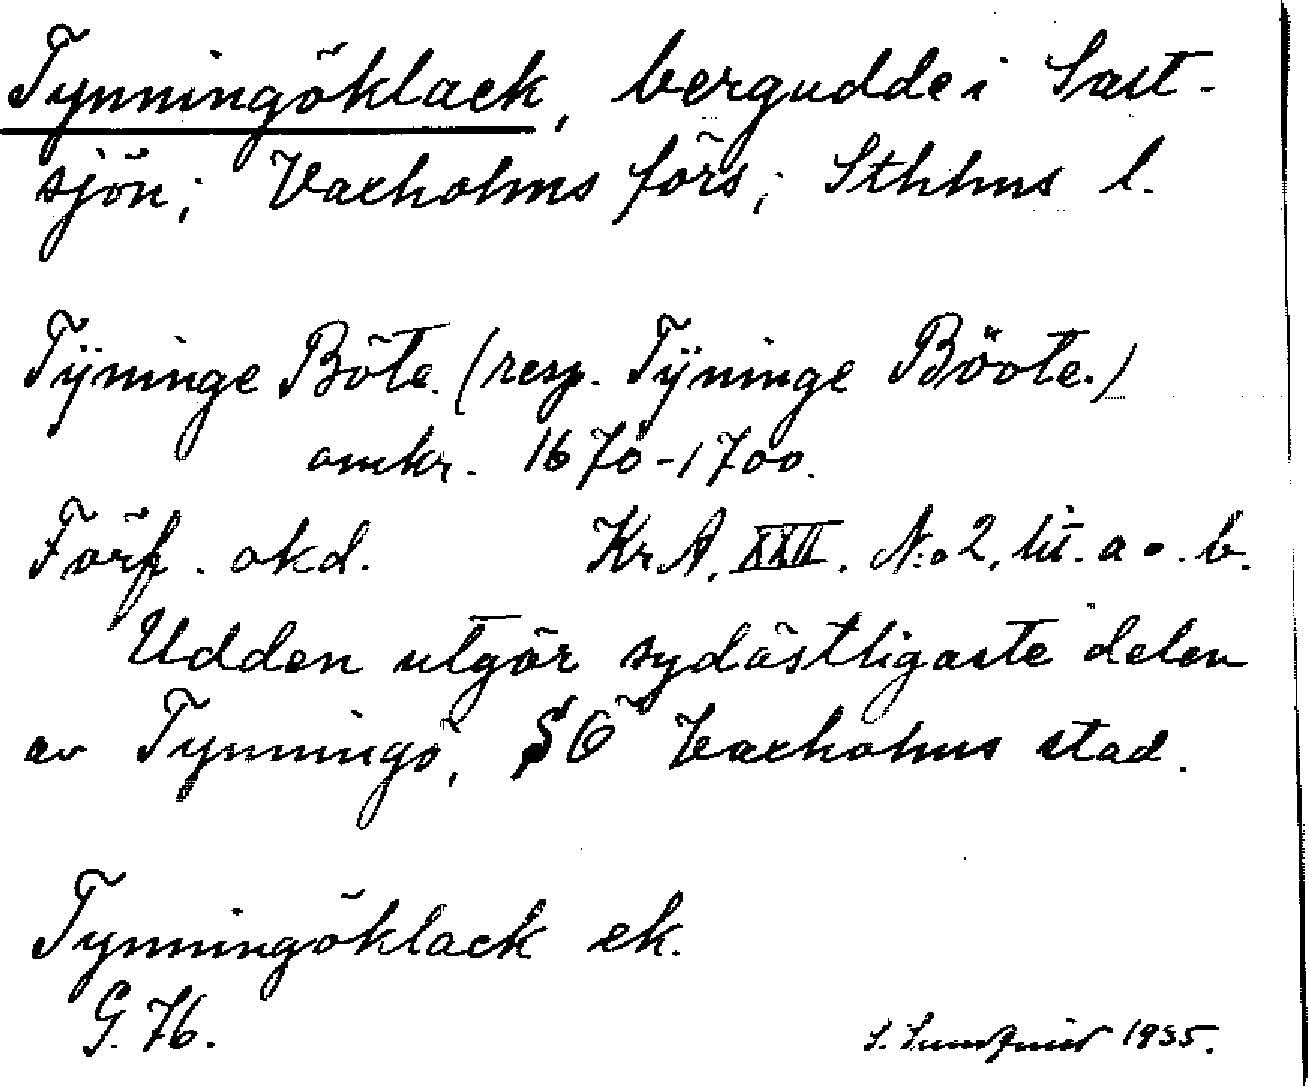 Tynningöklack, bergudde i Salt-
sjön; Vaxholms förs; Sthlms l.
Tÿninge Böte. (resp. Tÿninge Böote.)
omkr. 1670-1700.
Förf. okd. Kr A. XXII. N:o 2, lit. a o. b.
Udden utgör sydöstligaste delen
av Tynningö, SÖ Vaxholms stad.
Tynningöklack ek.
G. 76.
S. 1935.